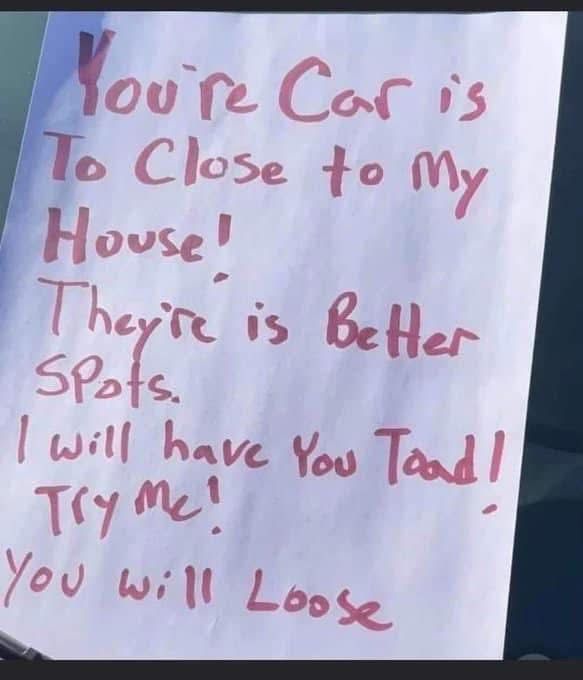 You're Car is
To Close to My
House!
They're is Better
Spots.
I will have You Toad!
Try Me!
You will Loose